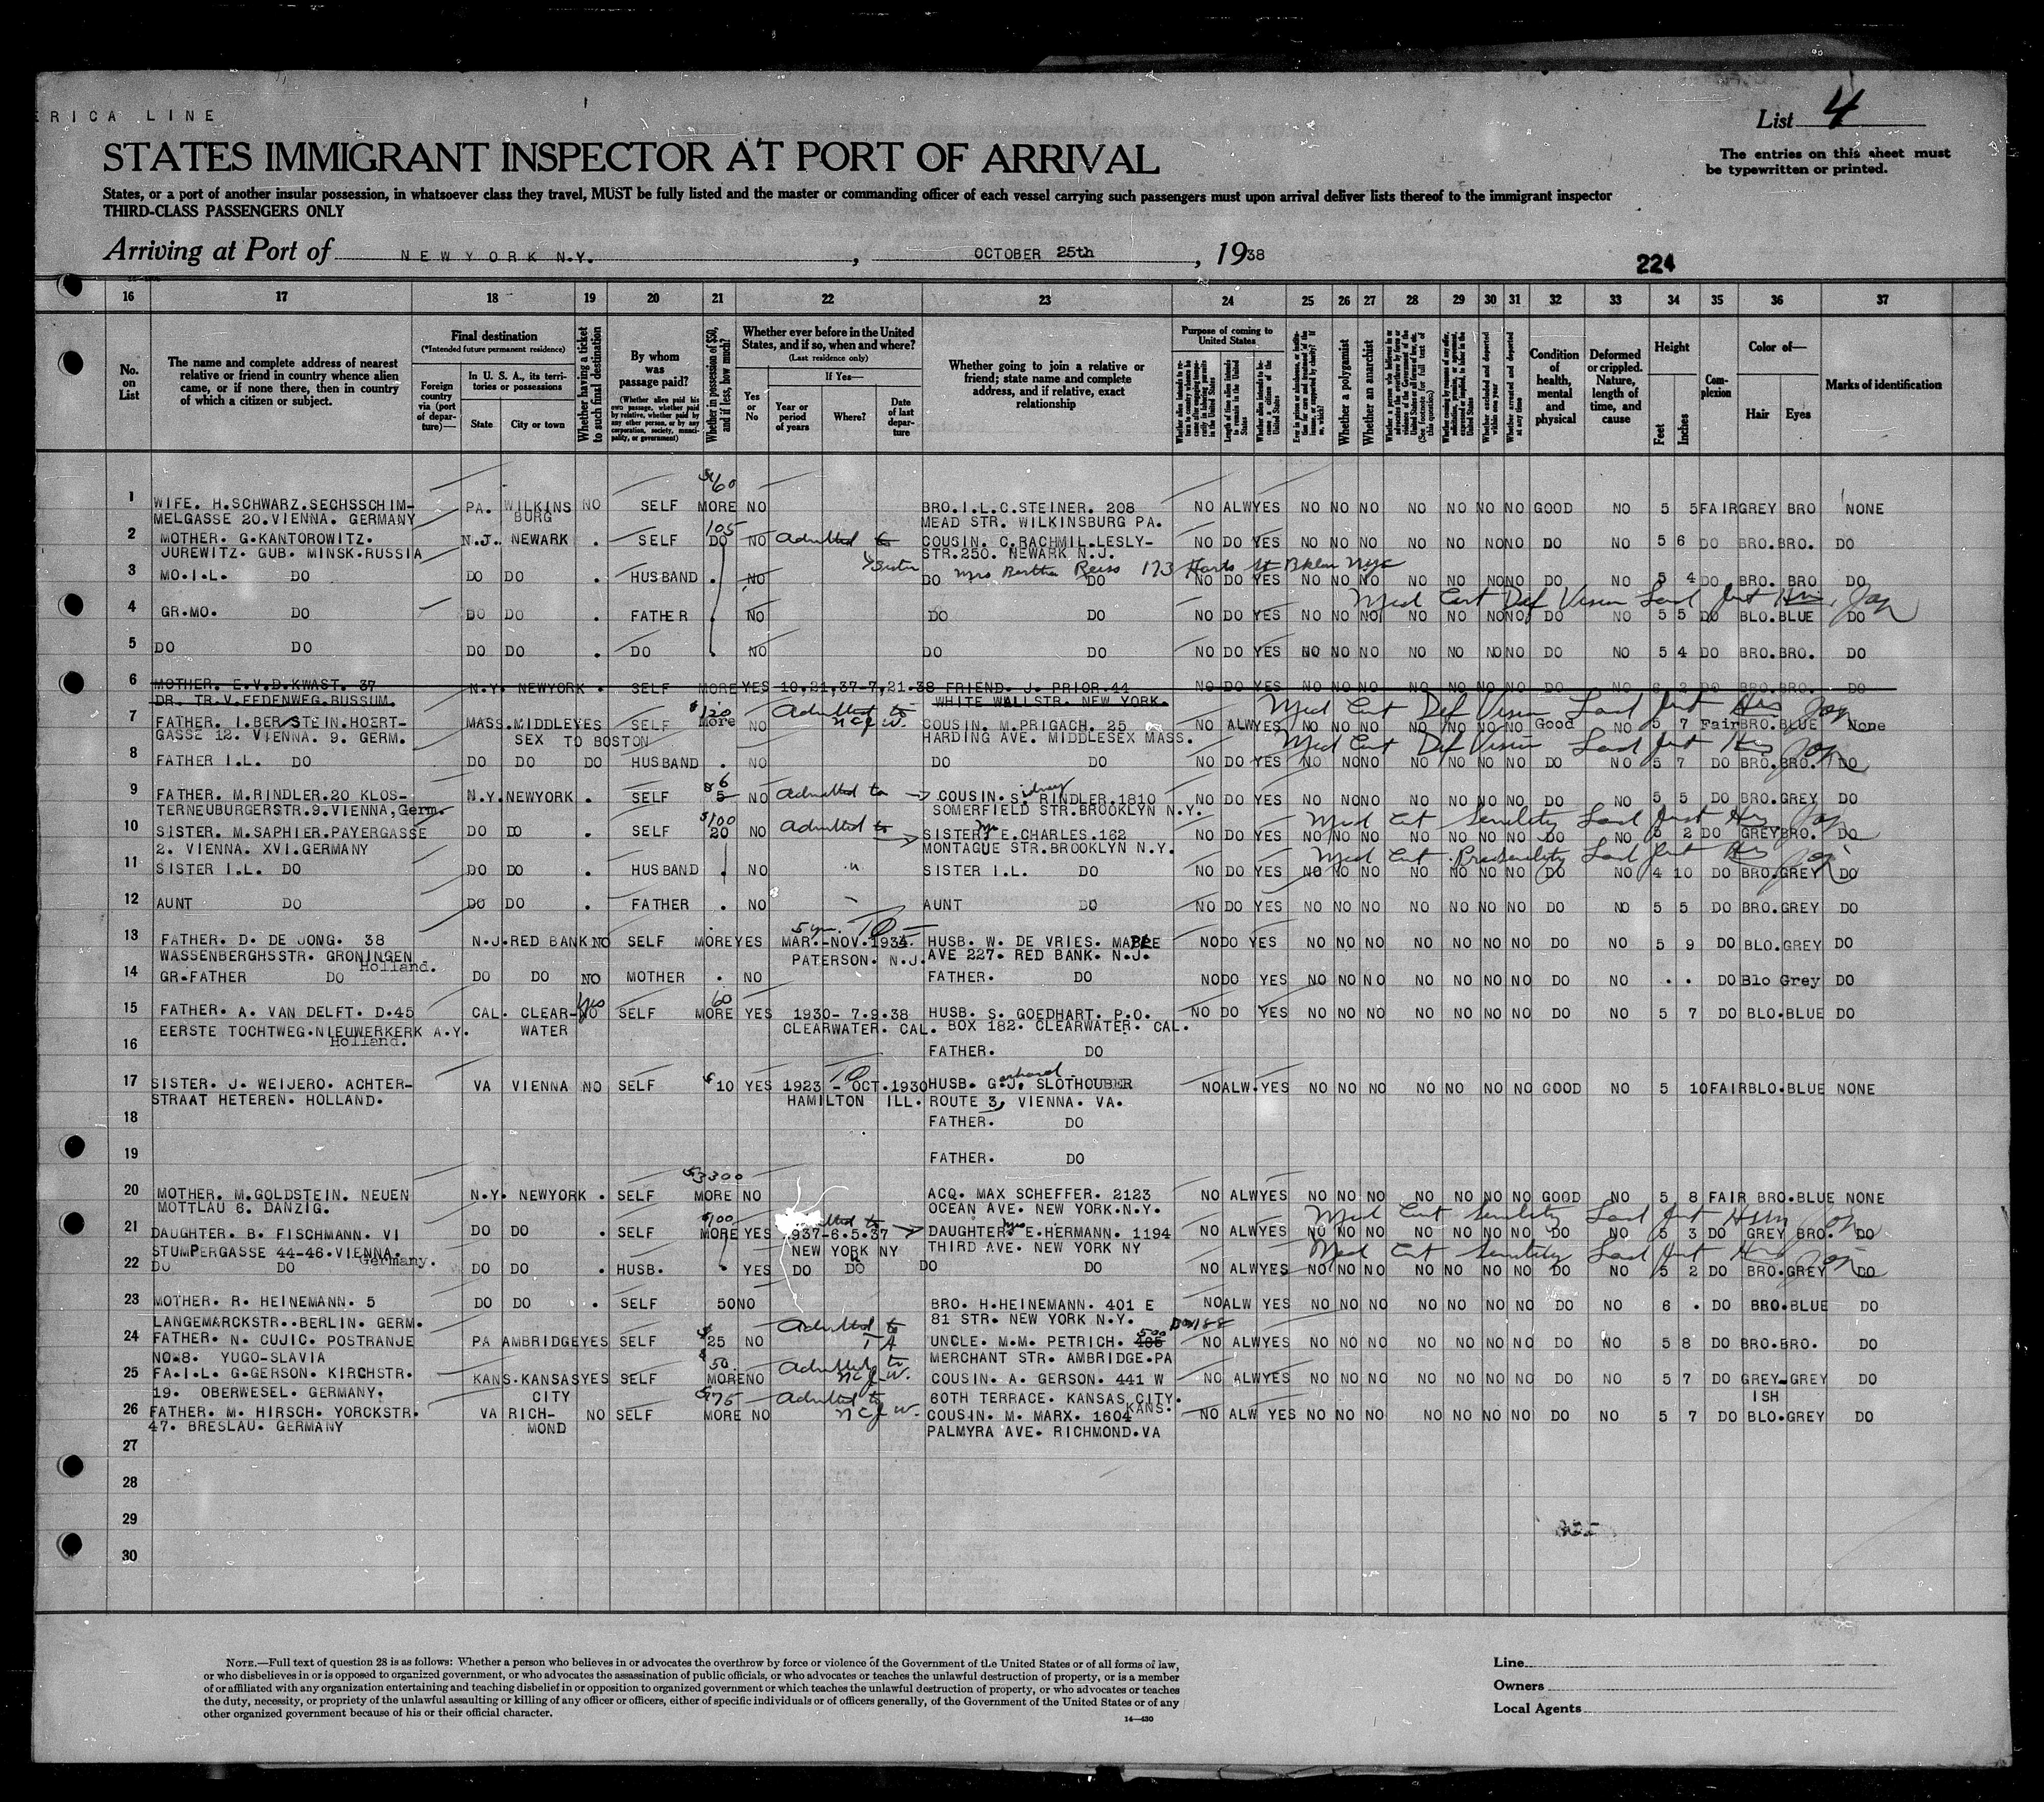 ERICA LINE
List 4
STATES IMMIGRANT INSPECTOR AT PORT OF ARRIVAL
The entries on this sheet must
be typewritten or printed.
States, or a port of another insular possession, in whatsoever class they travel, MUST be fully listed and the master or commanding officer of each vessel carrying such passengers must upon arrival deliver lists thereof to the immigrant inspector
THIRD-CLASS PASSENGERS ONLY
Arriving at Port of NEW YORK N.Y., OCTOBER 25th, 1938
224
16 17 18 19 20 21 22 23 24 25 26 27 28 29 30 31 32 33 34 35 36 37
No. on List
The name and complete address of nearest relative or friend in country whence alien came, or if none there, then in country of which a citizen or subject.
Final destination
(*Intended future permanent residence)
Foreign country via (port of departure)—
In U. S. A., its territories or possessions
State
City or town
Whether having a ticket to such final destination
By whom was passage paid?
(Whether alien paid his own passage, whether paid by relative, whether paid by any other person, or by any corporation, society, municipality, or government)
Whether in possession of $50, and if less, how much?
Whether ever before in the United States, and if so, when and where?
(Last residence only)
Yes or No
If Yes—
Year or period of years
Where?
Date of last departure
Whether going to join a relative or friend; state name and complete address, and if relative, exact relationship
Purpose of coming to United States
Length of time alien intends to remain in the United States
Whether a polygamist
Whether an anarchist
(See footnote for full text of this question)
Whether arrested and deported at any time
Condition of health, mental and physical
Deformed or crippled. Nature, length of time, and cause
Height
Feet
Inches
Complexion
Color of—
Hair
Eyes
Marks of identification
$60
1 WIFE. H.SCHWARZ.SECHSSCHIM- PA. WILKINS NO SELF MORE NO BRO.I.L.C.STEINER. 208 NO ALW YES NO NO NO NO NO NO NO GOOD NO 5 5 FAIR GREY BRO NONE
MELGASSE 20.VIENNA. GERMANY BURG MEAD STR. WILKINSBURG PA.
105
2 MOTHER. G.KANTOROWITZ. N.J. NEWARK . SELF DO NO Admitted to COUSIN. C.RACHMIL.LESLY- NO DO YES NO NO NO NO NO NO NO DO NO 5 6 DO BRO. BRO. DO
JUREWITZ. GUB. MINSK.RUSSIA STR.250. NEWARK N.J.
Sister Mrs Bertha Reiss 173 Harts St Bklyn Nyc
3 MO.I.L. DO DO DO . HUSBAND . NO DO DO NO DO YES NO NO NO NO NO NO NO DO NO 5 4 DO BRO. BRO DO
Med Cert Def Vision
4 GR.MO. DO DO DO . FATHER . NO DO DO NO DO YES NO NO NO NO NO NO NO DO NO 5 5 DO BLO. BLUE DO
5 DO DO DO DO . DO . NO DO DO NO DO YES NO NO NO NO NO NO NO DO NO 5 4 DO BRO. BRO. DO
6 MOTHER. E.V.D.KWAST. 37 N.Y. NEWYORK . SELF MORE YES 10,21,37-7,21-38 FRIEND. J. PRIOR.44 NO DO YES NO NO NO NO NO NO NO DO NO 6 2 DO BRO. BRO. DO
DR. TR.V.EEDENWEG.BUSSUM. WHITE WALLSTR. NEW YORK.
$120 Admitted to Med Cert Def Vision
7 FATHER. I.BERNSTEIN.HOERT- MASS. MIDDLE YES SELF More NO NCJW. COUSIN. M.PRIGACH. 25 NO ALW YES NO NO NO NO NO NO NO Good NO 5 7 Fair BRO. BLUE None
GASSE 12. VIENNA. 9. GERM. SEX TO BOSTON HARDING AVE. MIDDLESEX MASS.
Med Cert Def Vision
8 FATHER I.L. DO DO DO DO HUSBAND . NO DO DO NO DO YES NO NO NO NO NO NO NO DO NO 5 7 DO BRO. BRO. DO
$6
9 FATHER. M.RINDLER.20 KLOS- N.Y. NEWYORK . SELF 5 NO Admitted to COUSIN. Sidney RINDLER.1810 NO DO YES NO NO NO NO NO NO NO DO NO 5 5 DO BRO. GREY DO
TERNEUBURGERSTR.9.VIENNA,Germ. SOMERFIELD STR.BROOKLYN N.Y.
$100 Med Cert Senility
10 SISTER. M.SAPHIER.PAYERGASSE DO DO . SELF 20 NO Admitted to SISTER Mrs E.CHARLES.162 NO DO YES NO NO NO NO NO NO NO DO NO 5 2 DO GREY BRO. DO
2. VIENNA. XVI.GERMANY MONTAGUE STR.BROOKLYN N.Y.
Med Cert Presenility
11 SISTER I.L. DO DO DO . HUSBAND . NO " SISTER I.L. DO NO DO YES NO NO NO NO NO NO NO DO NO 4 10 DO BRO. GREY DO
12 AUNT DO DO DO . FATHER . NO AUNT DO NO DO YES NO NO NO NO NO NO NO DO NO 5 5 DO BRO. GREY DO
13 FATHER. D. DE JONG. 38 N.J. RED BANK NO SELF MORE YES MAR.-NOV.1934. HUSB. W. DE VRIES. MAPLE NO DO YES NO NO NO NO NO NO NO DO NO 5 9 DO BLO. GREY DO
WASSENBERGHSSTR. GRONINGEN PATERSON. N.J. AVE 227. RED BANK. N.J.
Holland.
14 GR-FATHER DO DO DO NO MOTHER . NO FATHER. DO NO DO YES NO NO NO NO NO NO NO DO NO . . DO Blo Grey DO
Yes 60
15 FATHER. A. VAN DELFT. D.45 CAL. CLEAR- NO SELF MORE YES 1930- 7.9.38 HUSB. S. GOEDHART. P.O. NO DO YES NO NO NO NO NO NO NO DO NO 5 7 DO BLO. BLUE DO
EERSTE TOCHTWEG.NIEUWERKERK A.Y. WATER CLEARWATER. CAL. BOX 182. CLEARWATER. CAL.
Holland.
16 FATHER. DO
17 SISTER. J. WEIJERO. ACHTER- VA VIENNA NO SELF $10 YES 1923 - OCT.1930 HUSB. Gerhard J. SLOTHOUBER NO ALW. YES NO NO NO NO NO NO NO GOOD NO 5 10 FAIR BLO. BLUE NONE
STRAAT HETEREN. HOLLAND. HAMILTON ILL. ROUTE 3, VIENNA. VA.
18 FATHER. DO
19 FATHER. DO
$3300
20 MOTHER. M.GOLDSTEIN. NEUEN N.Y. NEWYORK . SELF MORE NO ACQ. MAX SCHEFFER. 2123 NO ALW YES NO NO NO NO NO NO NO GOOD NO 5 8 FAIR BRO. BLUE NONE
MOTTLAU 6. DANZIG. OCEAN AVE. NEW YORK.N.Y.
$100 Med Cert Senility
21 DAUGHTER. B. FISCHMANN. VI DO DO . SELF MORE YES 937-6.5.37 DAUGHTER Mrs E.HERMANN. 1194 NO ALW YES NO NO NO NO NO NO NO DO NO 5 3 DO GREY BRO. DO
STUMPERGASSE 44-46.VIENNA. NEW YORK NY THIRD AVE. NEW YORK NY
Germany. Med Cert Senility
22 DO DO DO DO . HUSB. . YES DO DO DO DO NO ALW YES NO NO NO NO NO NO NO DO NO 5 2 DO BRO. GREY DO
23 MOTHER. R. HEINEMANN. 5 DO DO . SELF 50 NO BRO. H.HEINEMANN. 401 E NO ALW YES NO NO NO NO NO NO NO DO NO 6 . DO BRO. BLUE DO
LANGEMARCKSTR..BERLIN. GERM. 81 STR. NEW YORK N.Y.
Admitted to Box 188 500
24 FATHER. N. CUJIC. POSTRANJE PA AMBRIDGE YES SELF $25 NO TA UNCLE. M.M. PETRICH. NO ALW YES NO NO NO NO NO NO NO DO NO 5 8 DO BRO. BRO. DO
NO.8. YUGO-SLAVIA MERCHANT STR. AMBRIDGE.PA
$50. Admitted to
25 FA.I.L. G.GERSON. KIRCHSTR. KANS. KANSAS YES SELF MORE NO NCJW. COUSIN. A. GERSON. 441 W NO ALW YES NO NO NO NO NO NO NO DO NO 5 7 DO GREY-GREY DO
19. OBERWESEL. GERMANY. CITY 60TH TERRACE. KANSAS CITY. ISH
KANS.
$75 Admitted to
26 FATHER. M. HIRSCH. YORCKSTR. VA RICH- NO SELF MORE NO NCJW. COUSIN. M. MARX. 1604 NO ALW YES NO NO NO NO NO NO NO DO NO 5 7 DO BLO. GREY DO
47. BRESLAU. GERMANY MOND PALMYRA AVE. RICHMOND.VA
27
28
29
30
NOTE.—Full text of question 28 is as follows: Whether a person who believes in or advocates the overthrow by force or violence of the Government of the United States or of all forms of law,
or who disbelieves in or is opposed to organized government, or who advocates the assassination of public officials, or who advocates or teaches the unlawful destruction of property, or is a member
of or affiliated with any organization entertaining and teaching disbelief in or opposition to organized government or which teaches the unlawful destruction of property, or who advocates or teaches
the duty, necessity, or propriety of the unlawful assaulting or killing of any officer or officers, either of specific individuals or of officers generally, of the Government of the United States or of any
other organized government because of his or their official character.
14—430
Line
Owners
Local Agents